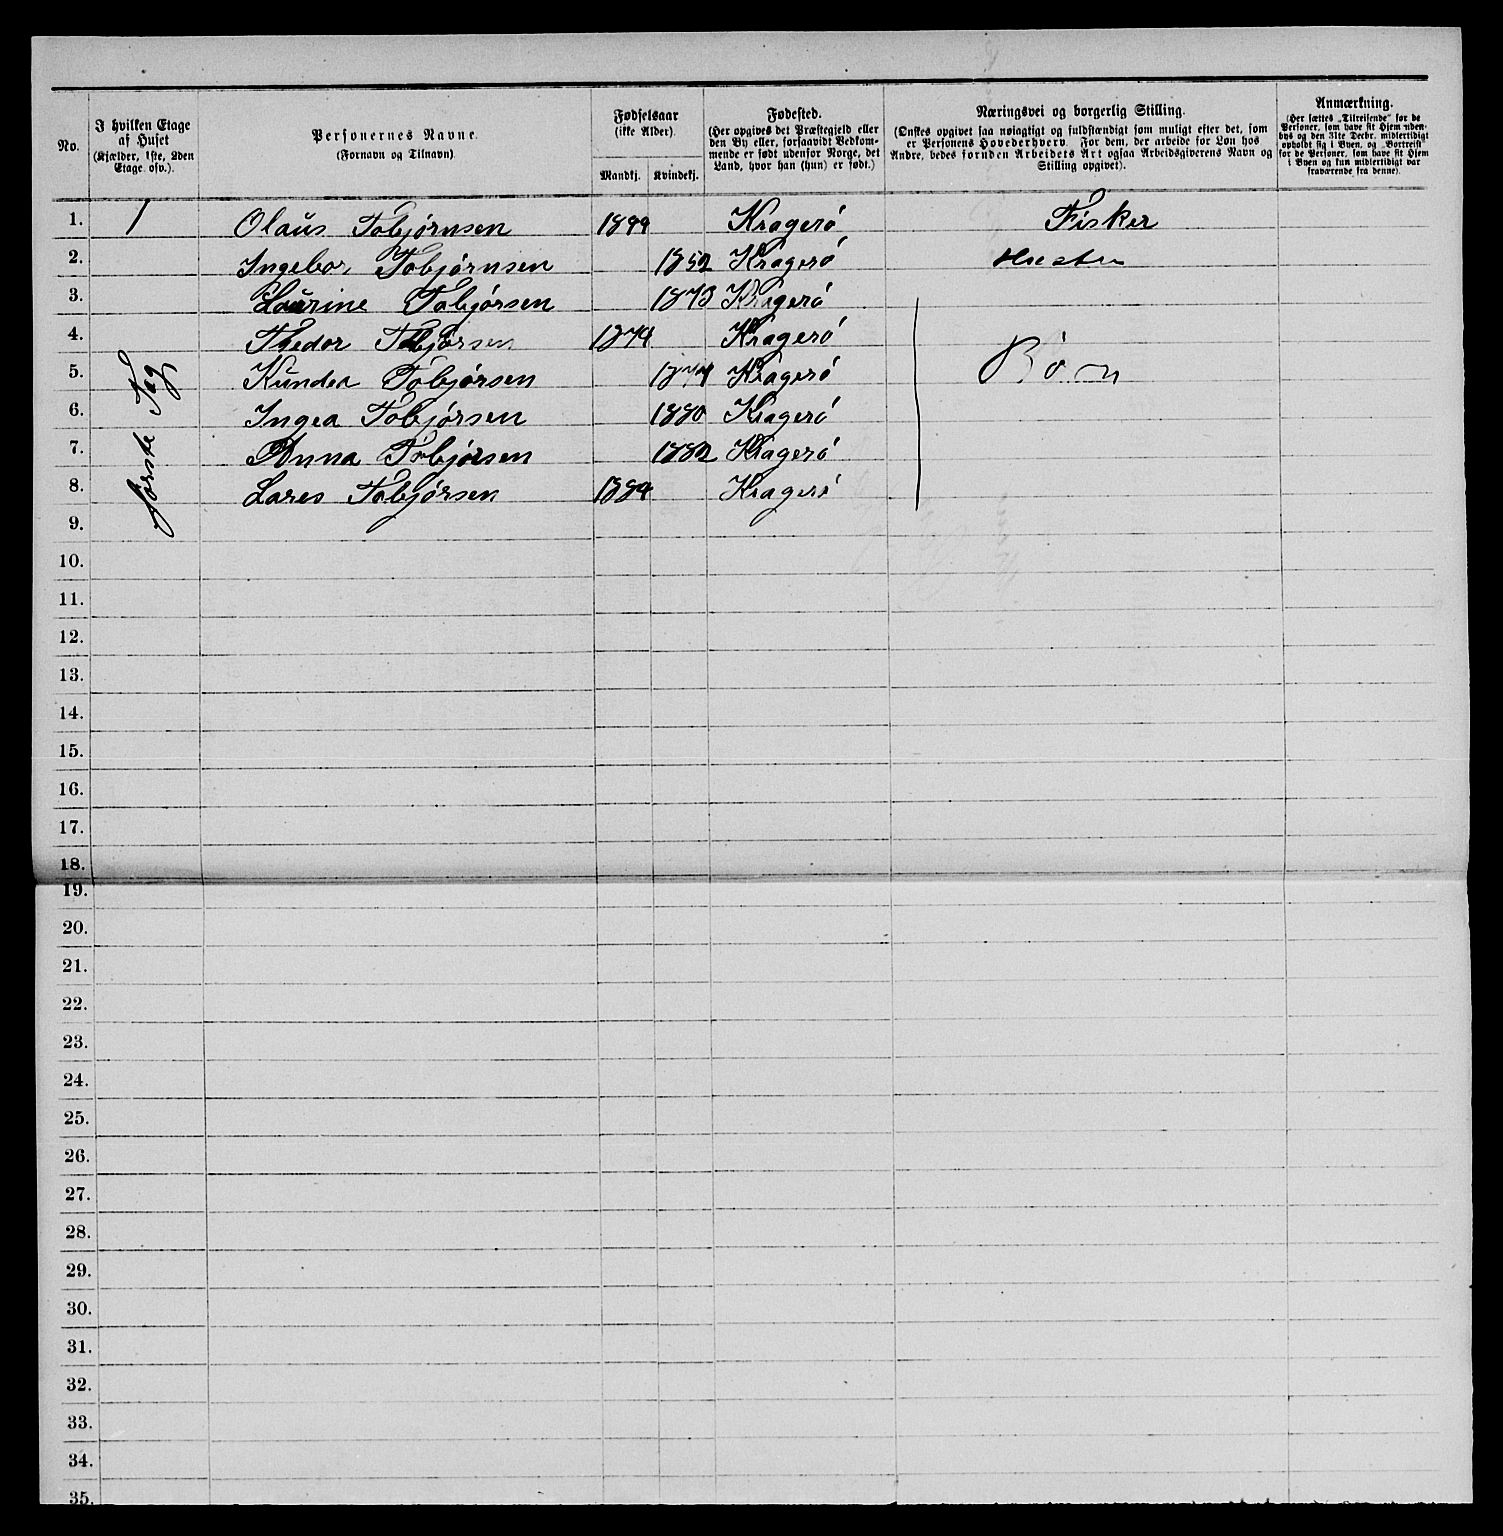 No.
I hvilken Etage
af Huset
(Kjælder, 1ste, 2den
Etage osv.).
Personernes Navne.
(Fornavn og Tilnavn)
Fødselsaar
(ikke Alder).
Mandkj.
Kvindekj.
Fødested.
(Her opgives det Præstegjeld eller
den By eller, forsaavidt Vedkom-
mende er født udenfor Norge, det
Land, hvor han (hun) er født.)
Næringsvei og borgerlig Stilling.
(Ønskes opgivet saa nøiagtigt og fuldstændigt som muligt efter det, som
er Personens Hovederhverv. For dem, der arbeide for Løn hos
Andre, bedes foruden Arbeidets Art ogsaa Arbeidsgiverens Navn og
Stilling opgivet).
Anmærkning.
(Her sættes „Tilreisende" for de
Personer, som have sit Hjem uden-
bys og den 31te Decbr. midlertidigt
opholdt sig i Byen, og „Bortreist"
for de Personer, som have sit Hjem
i Byen og kun midlertidigt var
fraværende fra denne).
1. 1 Olaus Tobjørnsen Kragerø Fisker
2. Ingebor Tobjørnsen 1852 Kragerø
3. Laurine Tobjørsen 1873 Kragerø
4. Thedor Tobjørsen 1874 Kragerø
5. Kundea Tobjørsen Kragerø Børn
6. Ingea Tobjørsen 1880 Kragerø
7. Anna Tobjørsen 1882 Kragerø
8. Lares Tobjørsen 1884 Kragerø
første Tag
9.
10.
11.
12.
13.
14.
15.
16.
17.
18.
19.
20.
21.
22.
23.
24.
25.
26.
27.
28.
29.
30.
31.
32.
33.
34.
35.